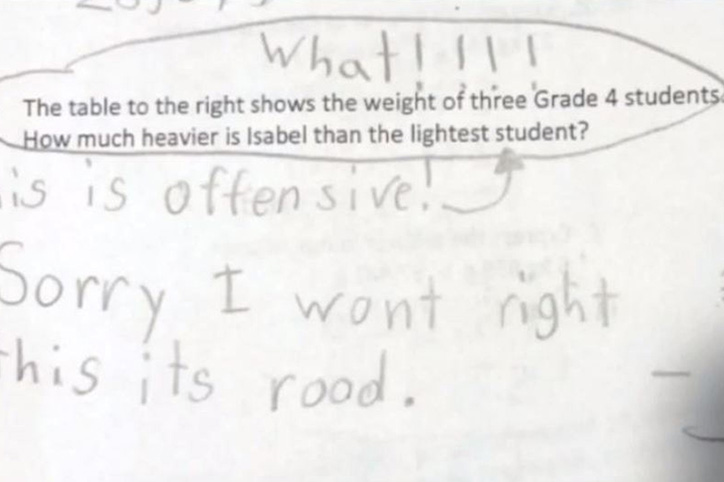 What! ! ! !
The table to the right shows the weight of three Grade 4 students.
How much heavier is Isabel than the lightest student?
is is offensive!
Sorry I wont right
this its rood.